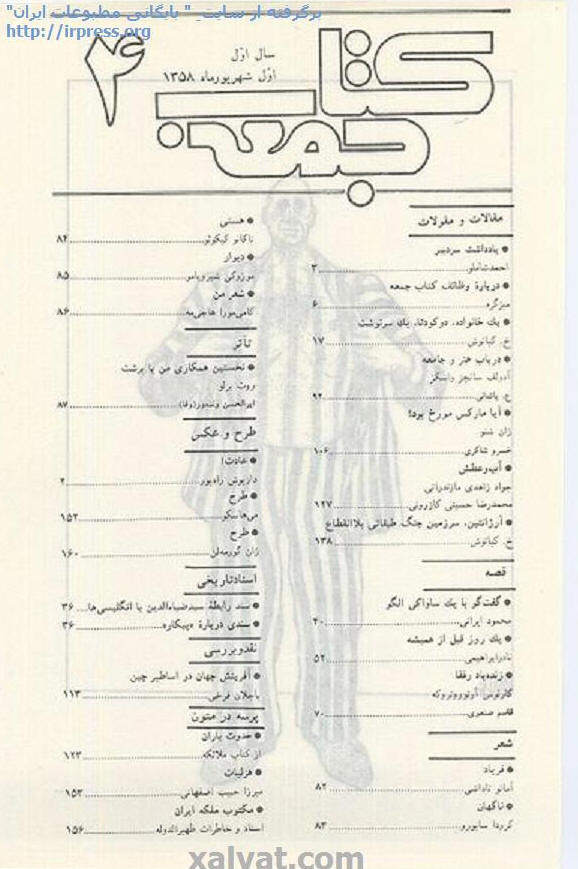 برگرفته از سایت "بایگانی مطبوعات ایران"
http://irpress.org
کتاب جمعه
۴
سال اوّل
اوّل شهریورماه ۱۳۵۸
مقالات و مقولات
● یادداشت سردبیر
احمد شاملو ۳
● دربارهٔ وظائف کتاب جمعه
۶
● یك خانواده، دو کودتا، یك سرنوشت
خ. کیانوش ۱۷
● در باب هنر و جامعه
آدولف سانچز واسکز
ع. پاشائی ۹۴
● آیا مارکس مورخ بود؟
ژان شنو
خسرو شاکری ۱۰۶
● آب‌در عطش
جواد زاهدی مازندرانی
محمدرضا حسینی کازرونی ۱۲۷
● آرژانتین، سرزمین جنگ طبقاتی بلاانقطاع
خ. کیانوش ۱۳۸
قصه
● گفت‌گو با یك ساواکی الگو
محمود ایرانی ۴۰
● یك روز قبل از همیشه
نادر ابراهیمی ۵۲
● زنده‌باد رفقا
قاسم صنعوی ۷۰
شعر
● فریاد
۸۲
● ناگهان
کرودا سابورو ۸۳
● هستی
ناکانو کیکوئو ۸۴
● دیوار
۸۵
● شعر من
۸۶
تآتر
● نخستین همکاری من با برشت
روت برلو
ابوالحسن ونده‌ور (وفا) ۸۷
طرح و عکس
● عادت!
داریوش رادپور ۲
● طرح
می‌هاسکو ۱۵۲
● طرح
۱۶۰
اسناد تاریخی
● سند رابطهٔ سیدضیاءالدین با انگلیسی‌ها ۳۶
● سندی دربارهٔ «پیکار» ۳۶
نقد و بررسی
● آفرینش جهان در اساطیر چین
باجلان فرخی ۱۱۳
پرسه در متون
● حدوث باران
از کتاب ملائکه ۱۲۳
● هزلیات
میرزا حبیب اصفهانی ۱۵۳
● مکتوب ملکه ایران
اسناد و خاطرات ظهیرالدوله ۱۵۶
xalvat.com